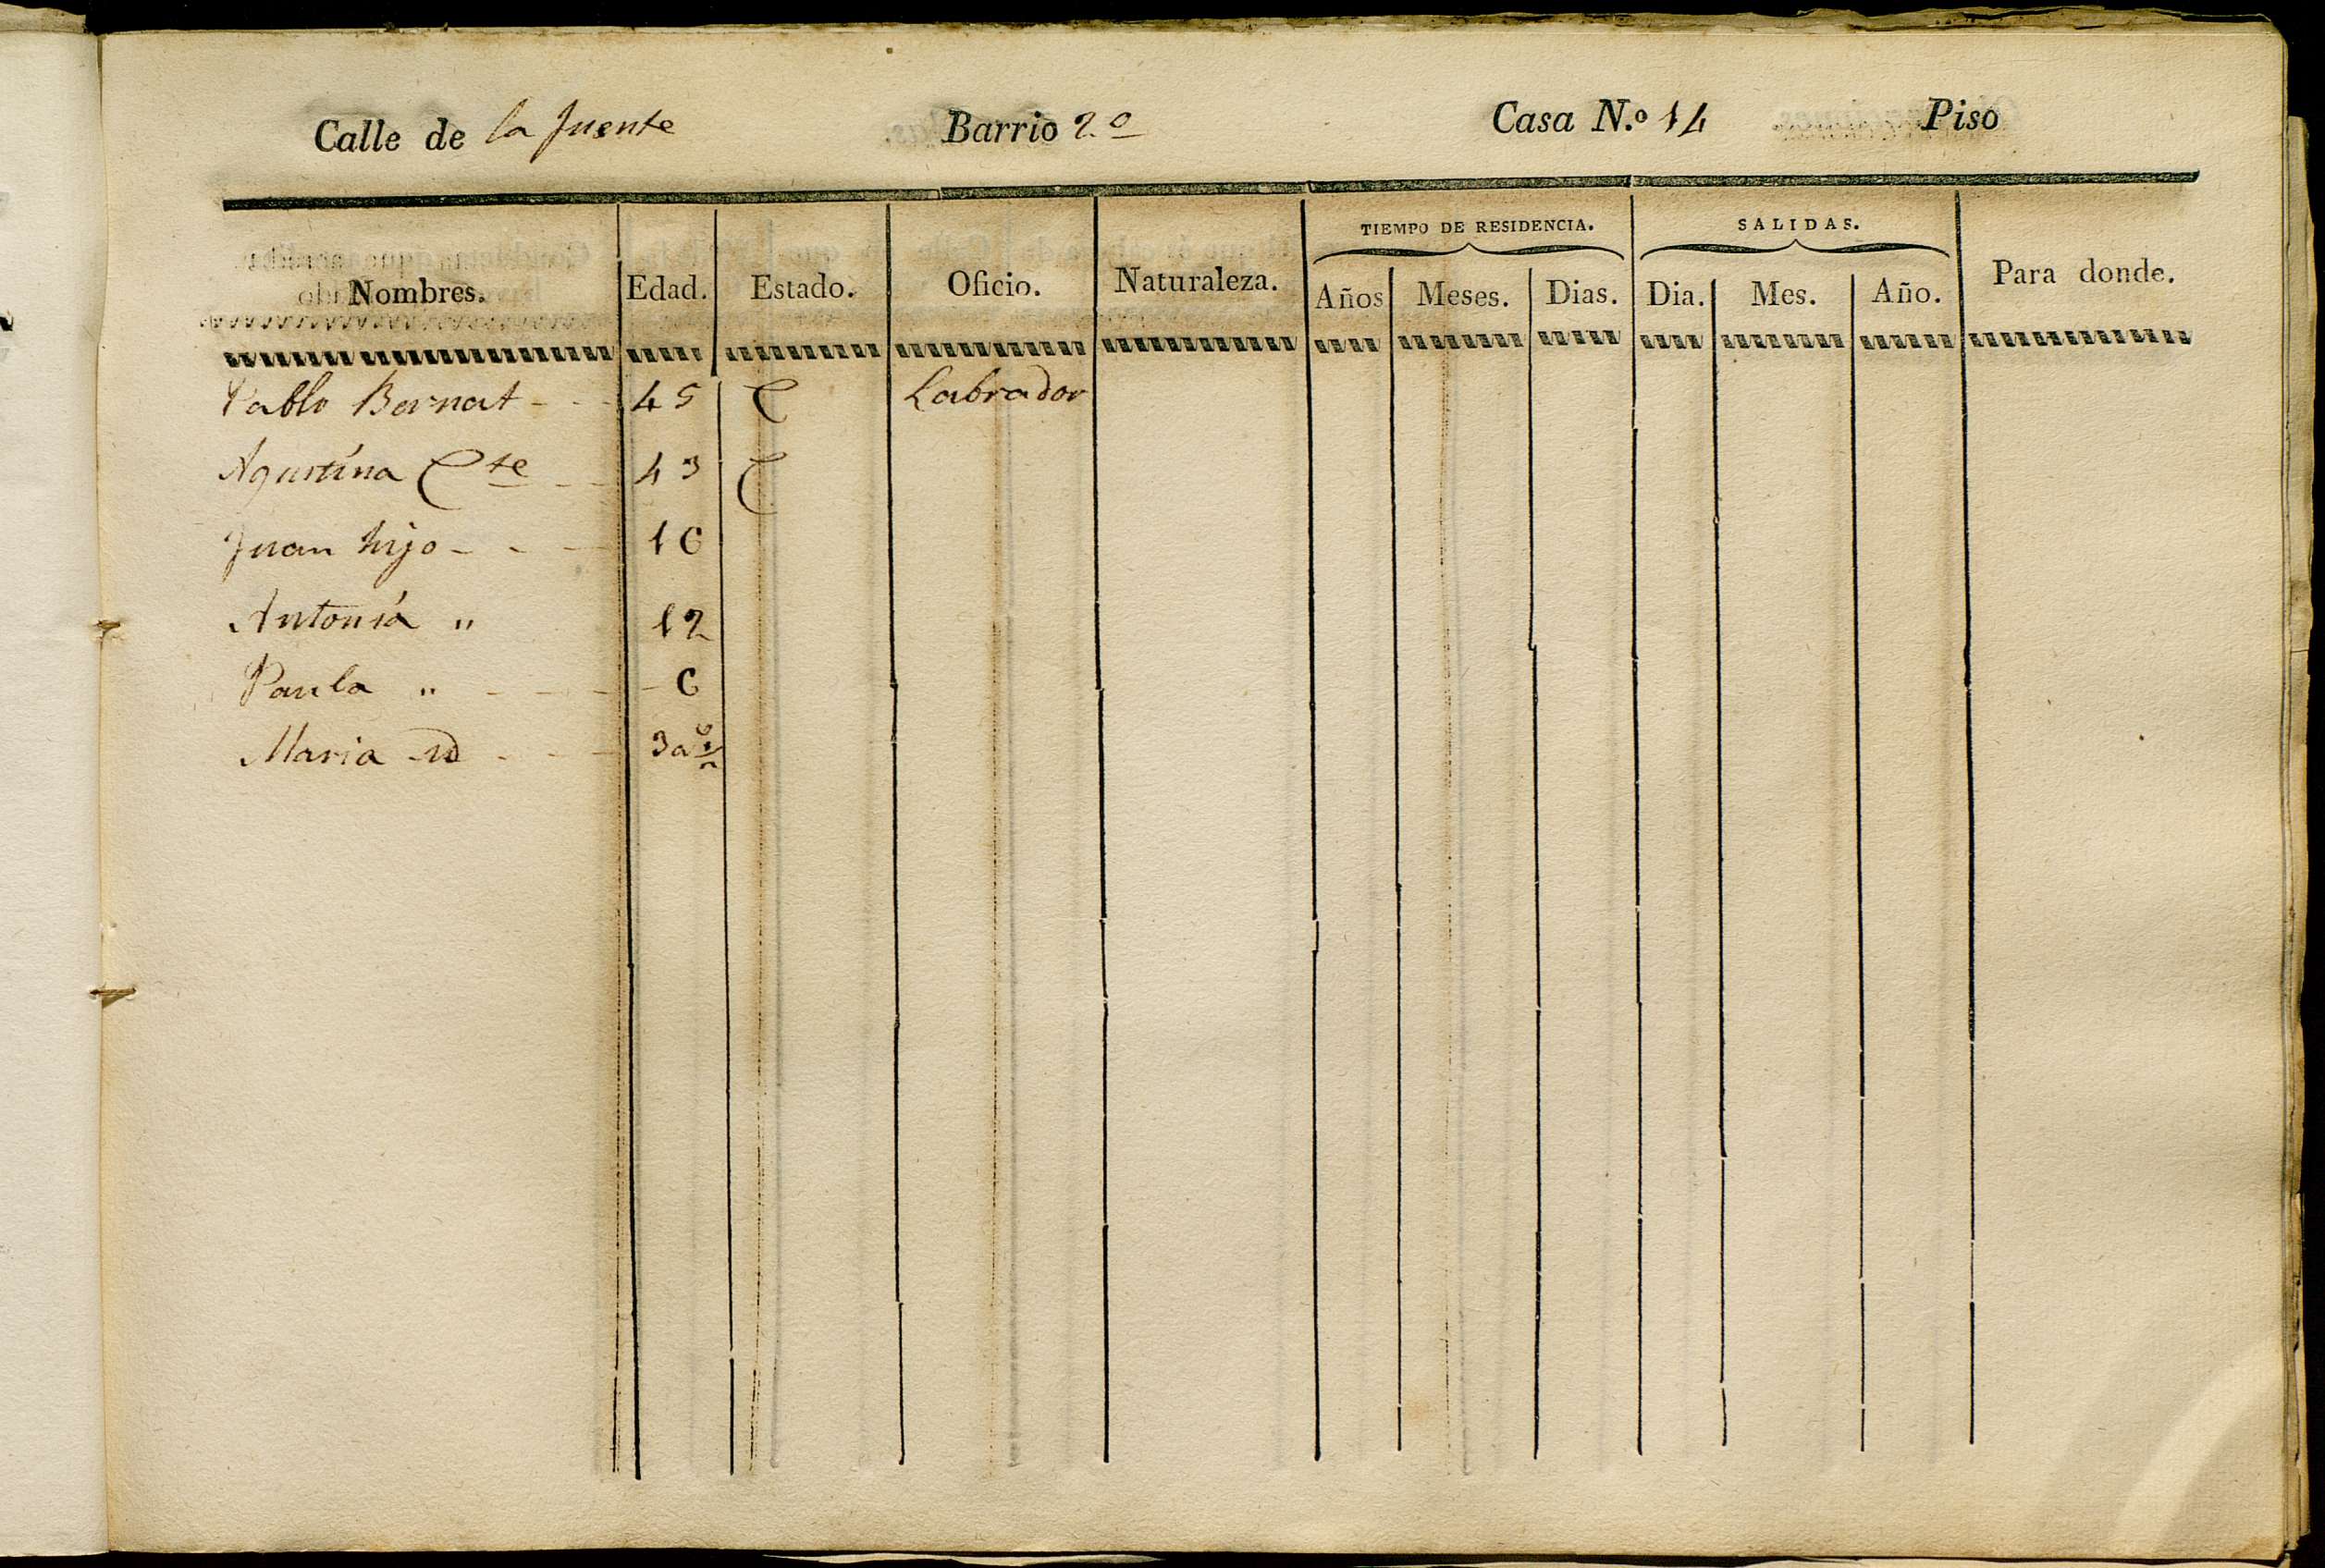 Calle de la fuente Barrio 2.º Casa N.º 14 Piso
TIEMPO DE RESIDENCIA. SALIDAS.
Nombres. Edad. Estado. Oficio. Naturaleza. Años Meses. Dias. Dia. Mes. Año. Para donde.
Pablo Bernat 45 C Labrador
Agustina Cte 43 C
Juan hijo 16
Antonia " 12
Paula " 6
Maria id 3 as